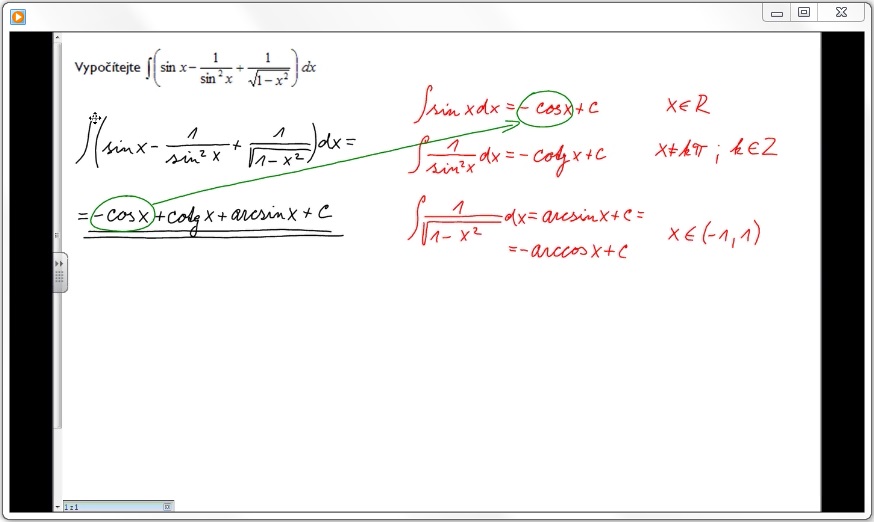 Vypočítejte ∫(sin x − 1/sin² x + 1/√(1−x²)) dx
∫(sin x − 1/sin² x + 1/√(1−x²)) dx =
= −cos x + cotg x + arcsin x + c
∫ sin x dx = −cos x + c x ∈ R
∫ 1/sin² x dx = −cotg x + c x ≠ kπ ; k ∈ Z
∫ 1/√(1−x²) dx = arcsin x + c =
= −arccos x + c x ∈ (−1, 1)
1 z 1